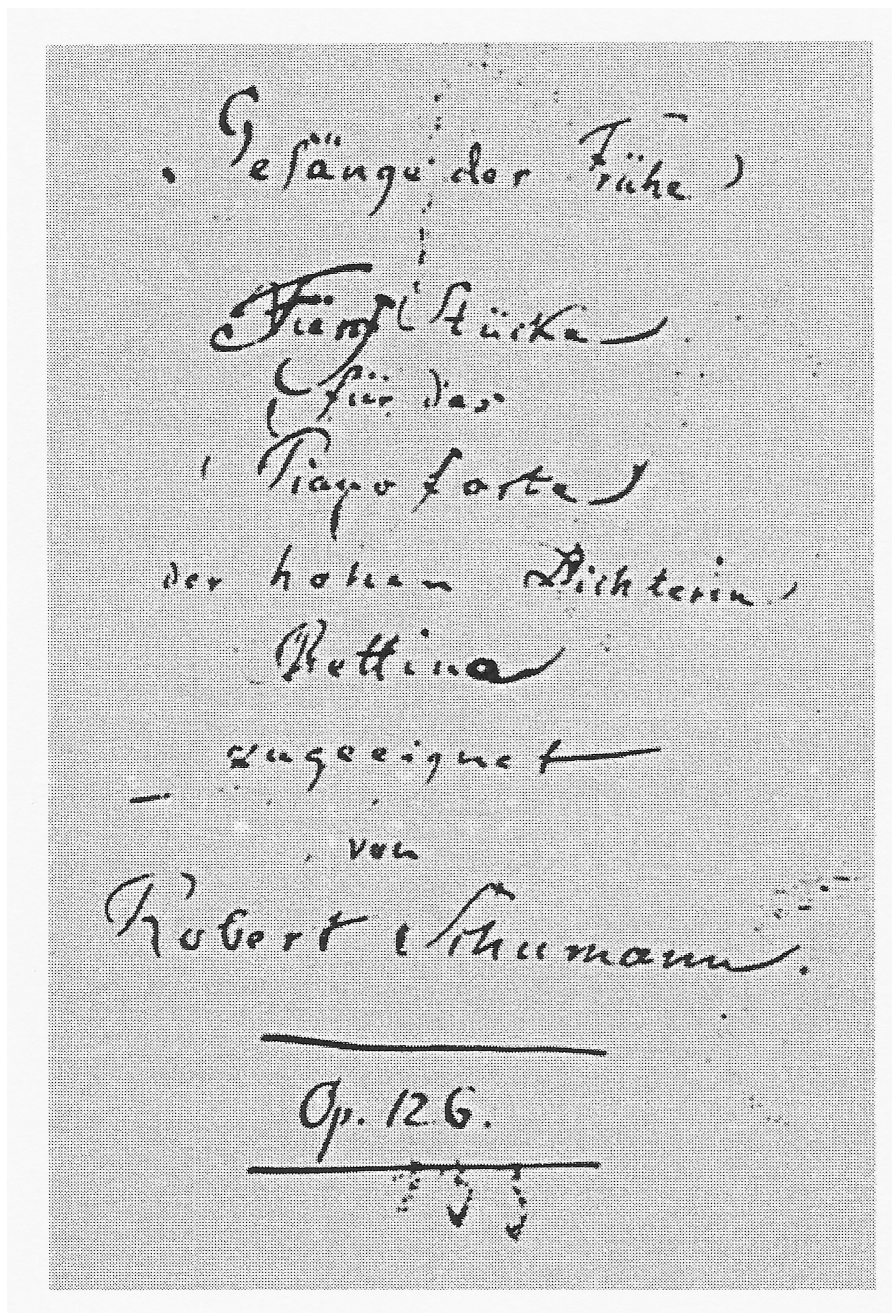 Gesänge der Frühe
Fünf Stücke
für das
Pianoforte
der hohen Dichterin
Bettina
zugeeignet
von
Robert Schumann.
Op. 126.